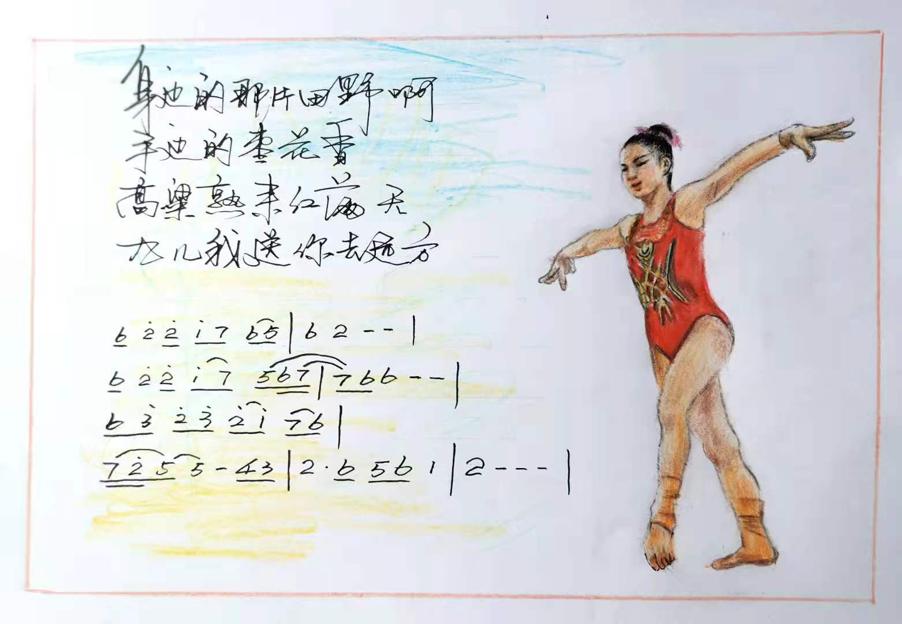 身边的那片田野啊
手边的枣花香
高粱熟来红满天
九儿我送你去远方
6 2̇ 2̇ 1̇ 7 65 | 6 2 - - |
6 2̇ 2̇ 1̇ 7 567 | 766 - - |
6 3̇ 2̇ 3̇ 2̇ 1̇ 76 |
7 2̇ 5 5 - 43 | 2 · 6 56 1 | 2 - - - |